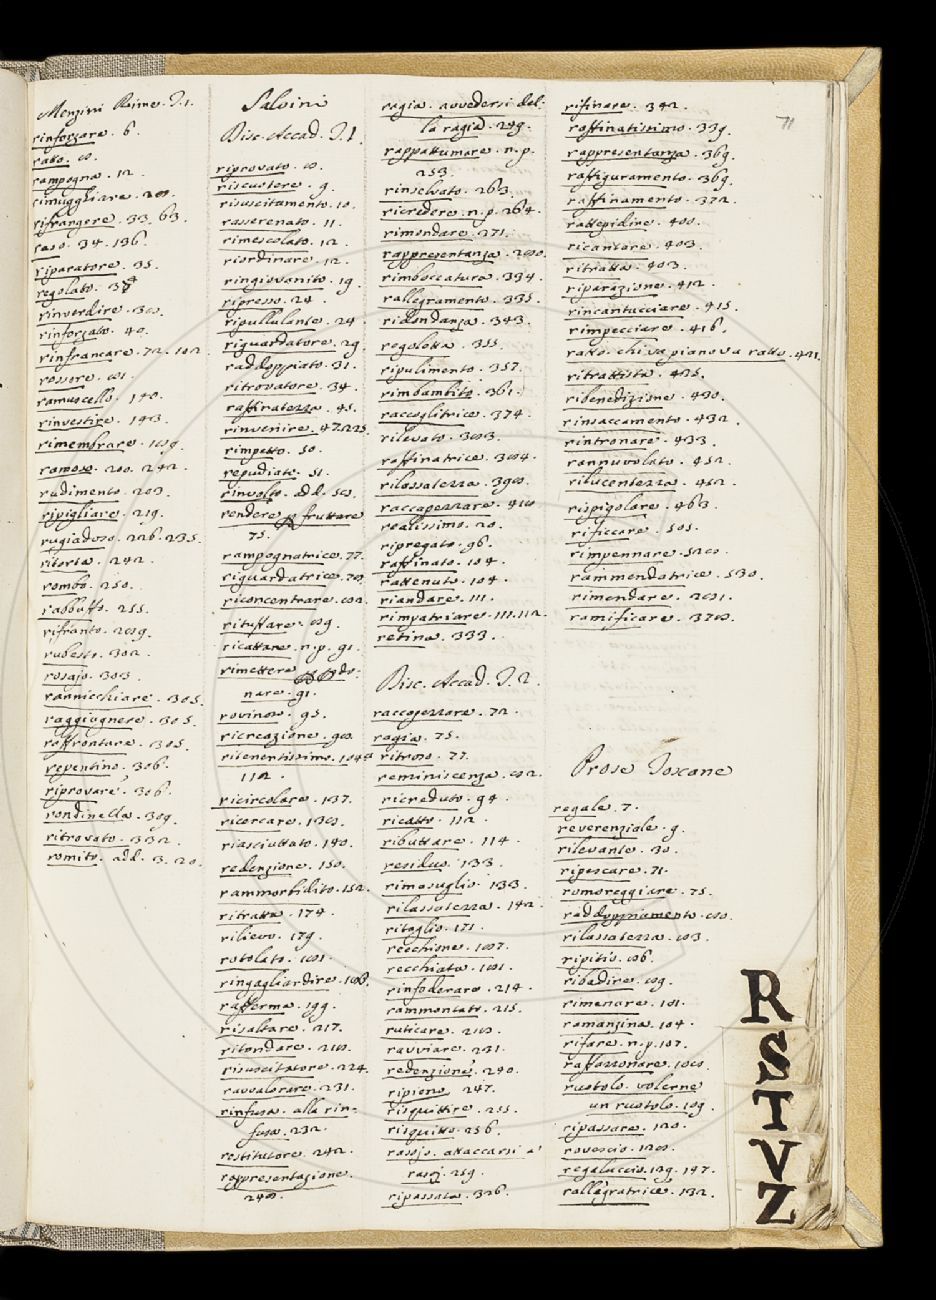 Menzini Rime. T.1.
rinforzare. 6.
raso. 8.
rampogna. 12.
rimugghiare. 28.
rifrangere. 33. 63.
raso. 34. 136.
riparatore. 35.
regolato. 37
rinverdire. 38.
rinforzato. 40.
rinfrancare. 72. 182.
rossore. 81.
ramuscello. 140.
rinvestire. 143.
rimembrare. 189.
ramoso. 200. 242.
rudimento. 203.
ripigliare. 219.
rugiadoso. 226. 235.
ritorta. 242.
rombo. 250.
rabbuffo. 255.
rifranto. 289.
rubesto. 302.
rosajo. 303.
rannicchiare. 305.
raggiugnere. 305.
raffrontare. 305.
repentino. 306.
riprovare. 306.
rondinella. 309.
ritrovato. 332.
romito. add. 3. 20.
Salvini
Disc. Accad. T.1.
riprovato. 8.
riscuotere. 9.
risuscitamento. 10.
rasserenato. 11.
rimescolato. 12.
riordinare. 12.
ringiovanito. 19.
ripresso. 24.
ripullulante. 24.
riguardatore. 29.
raddoppiato. 31.
ritrovatore. 34.
raffinatezza. 45.
rinvenire. 47. 225.
rimpetto. 50.
repudiato. 51.
rinvolto. add. 58.
rendere p fruttare
75.
rampognatrice. 77.
riguardatrice. 78.
riconcentrare. 82.
rituffare. 89.
ricattare. n.p. 91.
rimettere do-
nare. 91.
rovinoso. 95.
ricreazione. 98.
risentitissimo. 108
112.
ricircolare. 137.
ricercare. 138.
riasciuttato. 140.
redenzione. 150.
rammorbidito. 152.
ritratta. 174.
rilievo. 179.
rotolato. 181.
ringagliardire. 188.
rafferma. 199.
risaltare. 217.
ritondare. 218.
risuscitatore. 224.
ravvalorare. 231.
rinfusa. alla rin-
fusa. 232.
restitutore. 242.
rappresentazione.
248.
ragia. avvedersi del-
la ragia. 249.
rappattumare. n.p.
253.
rinselvato. 263.
ricredere. n.p. 264.
rimondare. 271.
rappresentanza. 280.
rimboccatura. 334.
rallegramento. 335.
ridondanza. 343.
regoletta. 355.
ripulimento. 357.
rimbambito. 361.
raccoglitrice. 374.
rilevato. 383.
raffinatrice. 384.
rilassatezza. 398.
raccapezzare. 418
realissimo. 20.
ripregato. 96.
raffinato. 104.
rattenuto. 104.
riandare. 111.
rimpatriare. 111. 112.
retina. 333.
Disc. Accad. T.2.
raccapezzare. 72.
ragia. 75.
ritroso. 77.
reminiscenza. 82.
ricreduto. 94.
ricatto. 112.
ributtare. 114.
residuo. 133.
rimasuglio. 133.
rilassatezza. 142.
ritaglio. 171.
recchione. 187.
recchiata. 181.
rinfoderare. 214.
rammontato. 215.
ruticare. 218.
ravviare. 231.
redenzione. 240.
ripieno. 247.
risquittire. 255.
risquitto. 256.
rasojo. attaccarsi a'
rasoj. 259.
ripassata. 326.
71
rifinare. 342.
raffinatissimo. 339.
rappresentanza. 369.
raffiguramento. 369.
raffinamento. 372.
rattepidire. 400.
ricantare. 403.
ritratta. 403.
riparazione. 412.
rincantucciare. 415.
rimpecciare. 416.
ratto. chi va piano va ratto. 421.
ritrattista. 425.
ribenedizione. 430.
rinsaccamento. 432.
rintronare. 433.
rannuvolato. 452.
rilucentezza. 462.
rispigolare. 463.
rificcare. 505.
rimpennare. 528.
rammendatrice. 530.
rimendare. 281.
ramificare. 378.
Prose Toscane
regala. 7.
reverenziale. 9.
rilevante. 30.
ripescare. 71.
romoreggiare. 75.
raddoppiamento. 80.
rilassatezza. 83.
ripitio. 86.
ribadire. 89.
rimenare. 101.
romanzina. 104.
rifare. n.p. 107.
raffazzonare. 108.
ruotolo. volerne
un ruotolo. 109.
ripassare. 120.
rovescio. 128.
regaluccio. 129. 147.
rallegratrice. 132.
R
S
T
V
Z